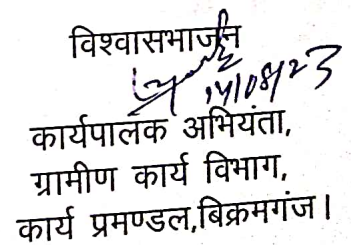 विश्वासभाजन
14/08/23
कार्यपालक अभियंता,
ग्रामीण कार्य विभाग,
कार्य प्रमण्डल,बिक्रमगंज।